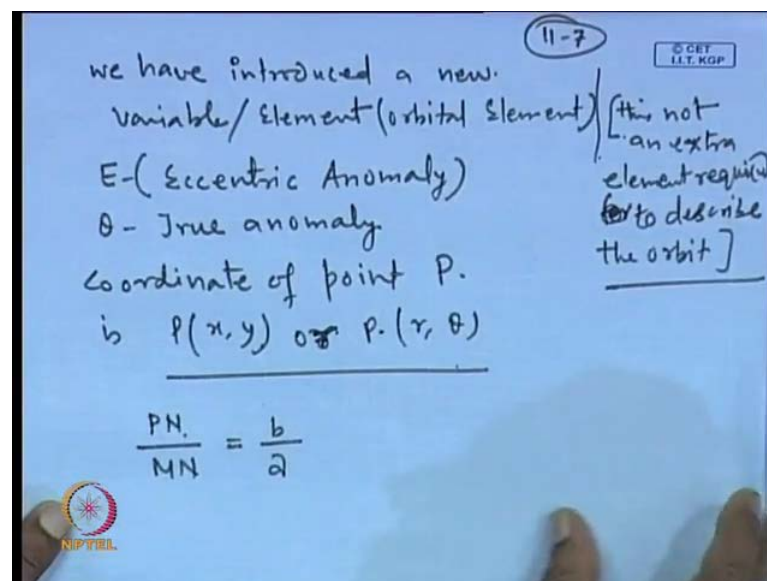 11-7
© CET
I.I.T. KGP
we have introduced a new.
variable/ Element (orbital Element)
[this not
an extra
element
to describe
the orbit]
E-( Eccentric Anomaly)
θ - True anomaly.
coordinate of point P.
is P(x, y) or P.(r, θ)
PN. / MN = b / a
NPTEL